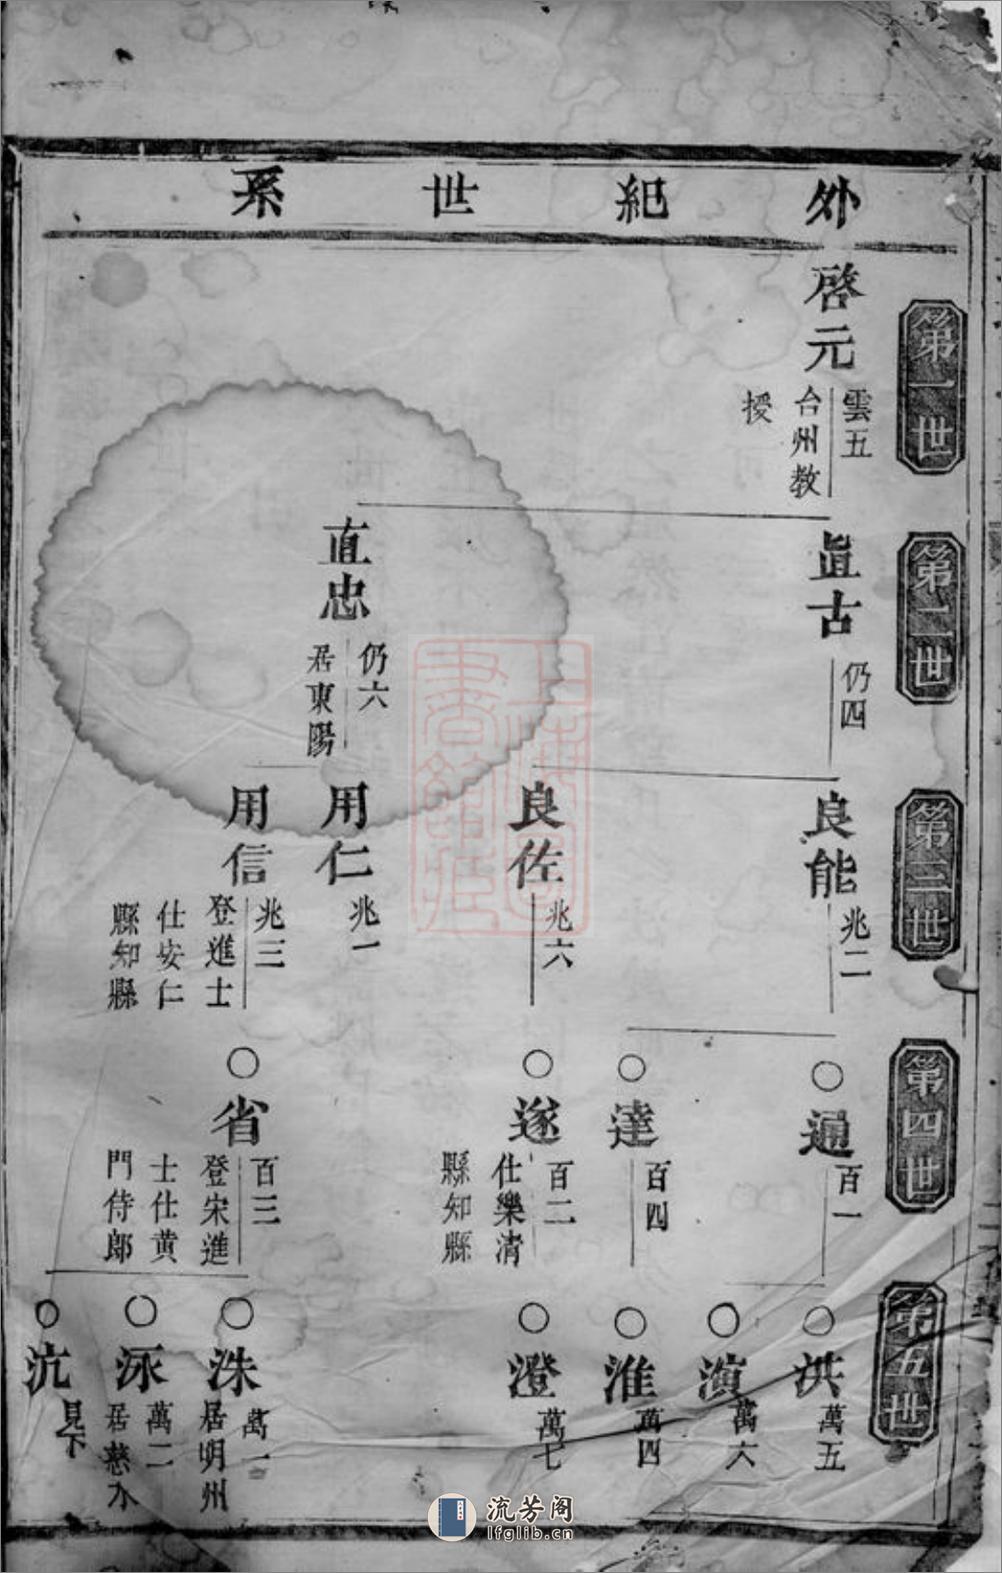 外紀世系
第一世
啓元
雲五
台州教
授
第二世
眞古
仍四
直忠
仍六
居東陽
第三世
良能
兆二
良佐
兆六
用仁
兆一
用信
兆三
登進士
仕安仁
縣知縣
第四世
○通
百一
○達
百四
○遂
百二
仕樂清
縣知縣
○省
百三
登宋進
士仕黄
門侍郎
第五世
○洪
萬五
○演
萬六
○淮
萬四
○澄
萬七
○洙
萬一
居明州
○泳
萬二
居慈水
○沆
見下
上海圖書館藏
流芳阁
lfglib.cn